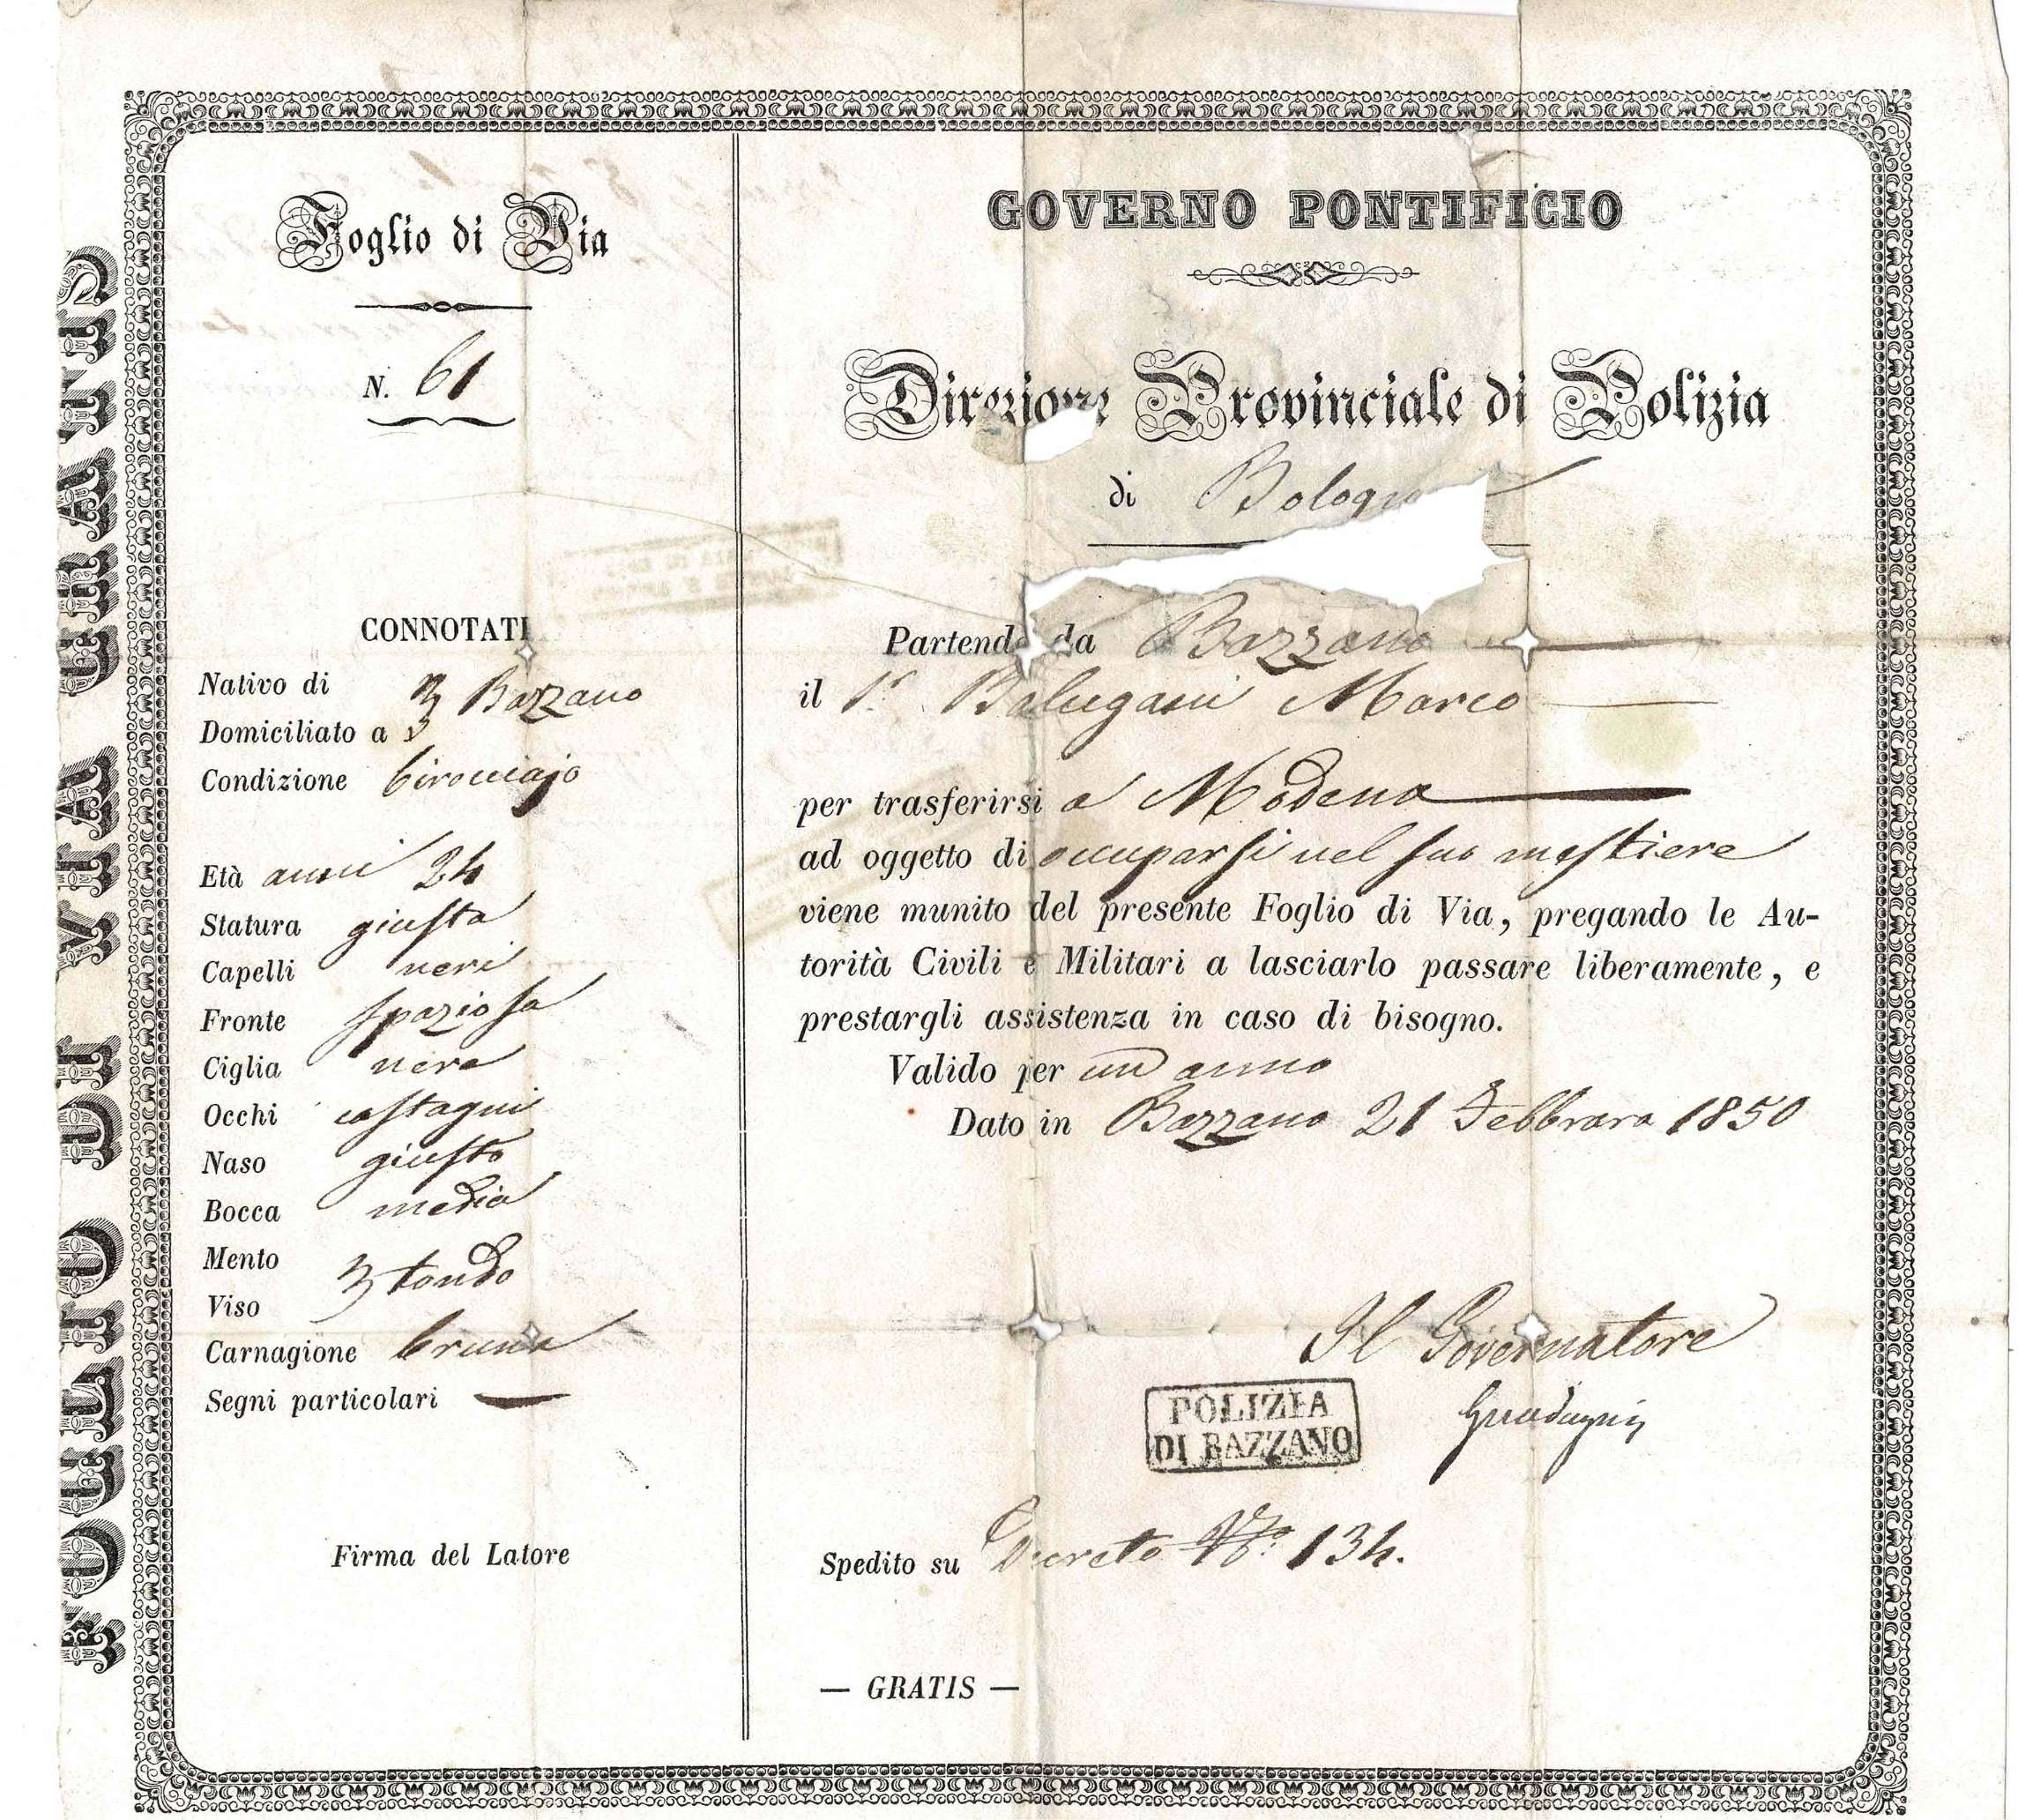 FOGLIO DI VIA GRATIS
Foglio di Via
N. 61
CONNOTATI
Nativo di
Domiciliato a } Bazzano
Condizione birocciajo
Età anni 24
Statura giusta
Capelli neri
Fronte spaziosa
Ciglia nere
Occhi castagni
Naso giusto
Bocca media
Mento
Viso } tondo
Carnagione bruna
Segni particolari —
Firma del Latore
GOVERNO PONTIFICIO
Direzione Provinciale di Polizia
di Bologna
Partendo da Bazzano
il Balugani Marco
per trasferirsi a Modena
ad oggetto di occuparsi nel suo mestiere
viene munito del presente Foglio di Via, pregando le Au-
torità Civili e Militari a lasciarlo passare liberamente, e
prestargli assistenza in caso di bisogno.
Valido per un anno
Dato in Bazzano 21 Febbraro 1850
Il Governatore
POLIZIA
DI BAZZANO
Spedito su Decreto No. 134.
— GRATIS —